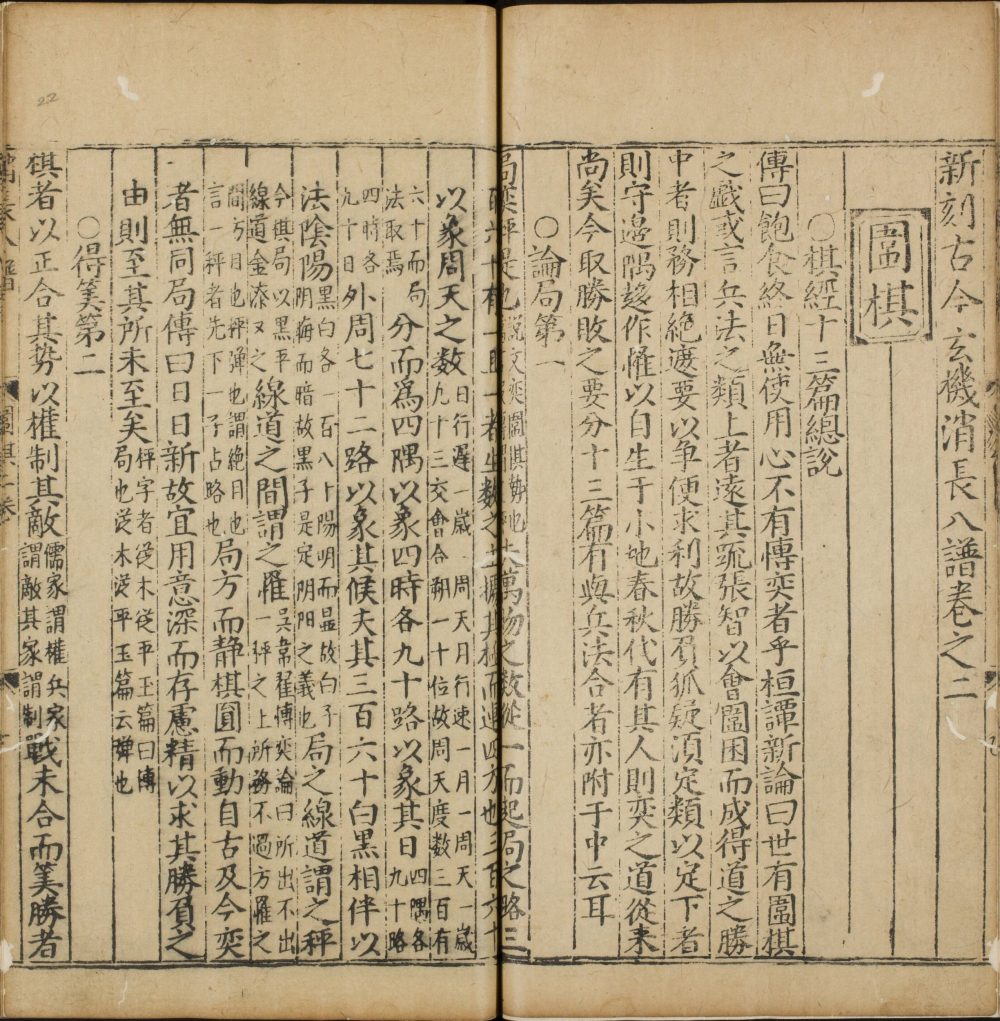 新刻古今玄機消長八譜卷之二
圍棋
○棋經十三篇總說
傳曰飽食終日無使用心不有愽奕者乎桓譚新論曰世有圍棋
之戲或言兵法之類上者遠其疏張智以會圍因而成得道之勝
中者則務相絕遮要以爭便求利故勝負狐疑湏定類以定下者
則守邊隅趍作罹以自生于小地春秋代有其人則奕之道從來
尚矣今取勝敗之要分十三篇有與兵法合者亦附于中云耳
○論局第一
夫萬物之數從一而起局之路三
百六十有一一者生數之主據其極而運四方也三百六十
以象周天之數日行遲一歲一周天月行速一月一周天一歲
九十三交會合朔一十位故周天度數三百有
六十而局
法取焉分而爲四隅以象四時各九十路以象其日四隅各
九十路
四時各
九十日外周七十二路以象其候夫其三百六十白黑相伴以
法陰陽黑白各一百八十陽明而显故白子
阴晦而暗故黑子是定阴阳之義也局之線道謂之秤
今棋局以黑平
線道金漆又之線道之間謂之罹吳韋罹愽奕論曰所出不出
一秤之上所務不過方罹之
間方目也秤彈也謂絶目也
言一秤者先下一子占路也局方而静棋圓而動自古及今奕
者無同局傳曰日日新故宜用意深而存慮精以求其勝負之
由則至其所未至矣秤字者從木從平王篇曰愽
局也從木從平玉篇云彈也
○得筭第二
棋者以正合其势以權制其敵儒家謂權兵家
謂敵其家謂制戰未合而筭勝者
圍棋二卷
22